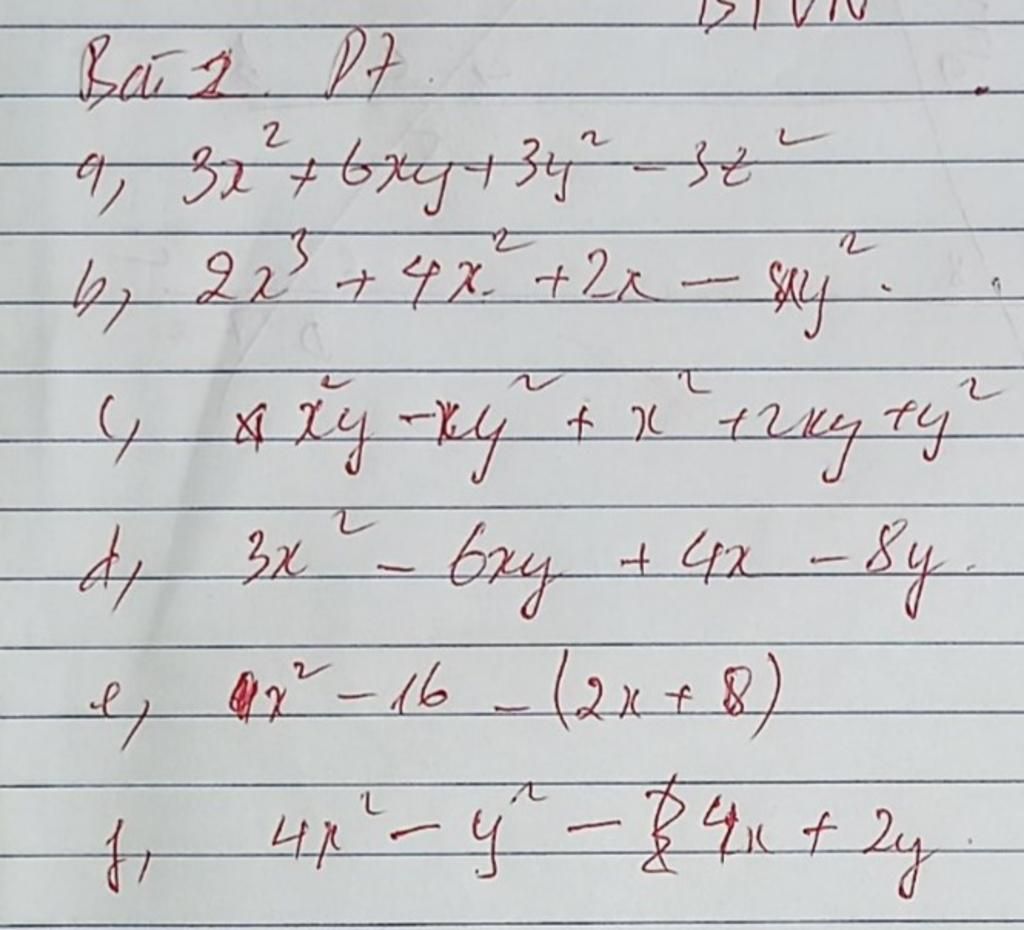 BTVN
Bài 2. PT.
a, 3x² + 6xy + 3y² - 3z²
b, 2x³ + 4x² + 2x - 8xy².
c, x²y - xy² + x² + 2xy + y²
d, 3x² - 6xy + 4x - 8y.
e, x² - 16 - (2x + 8)
f, 4x² - y² - 4x + 2y.